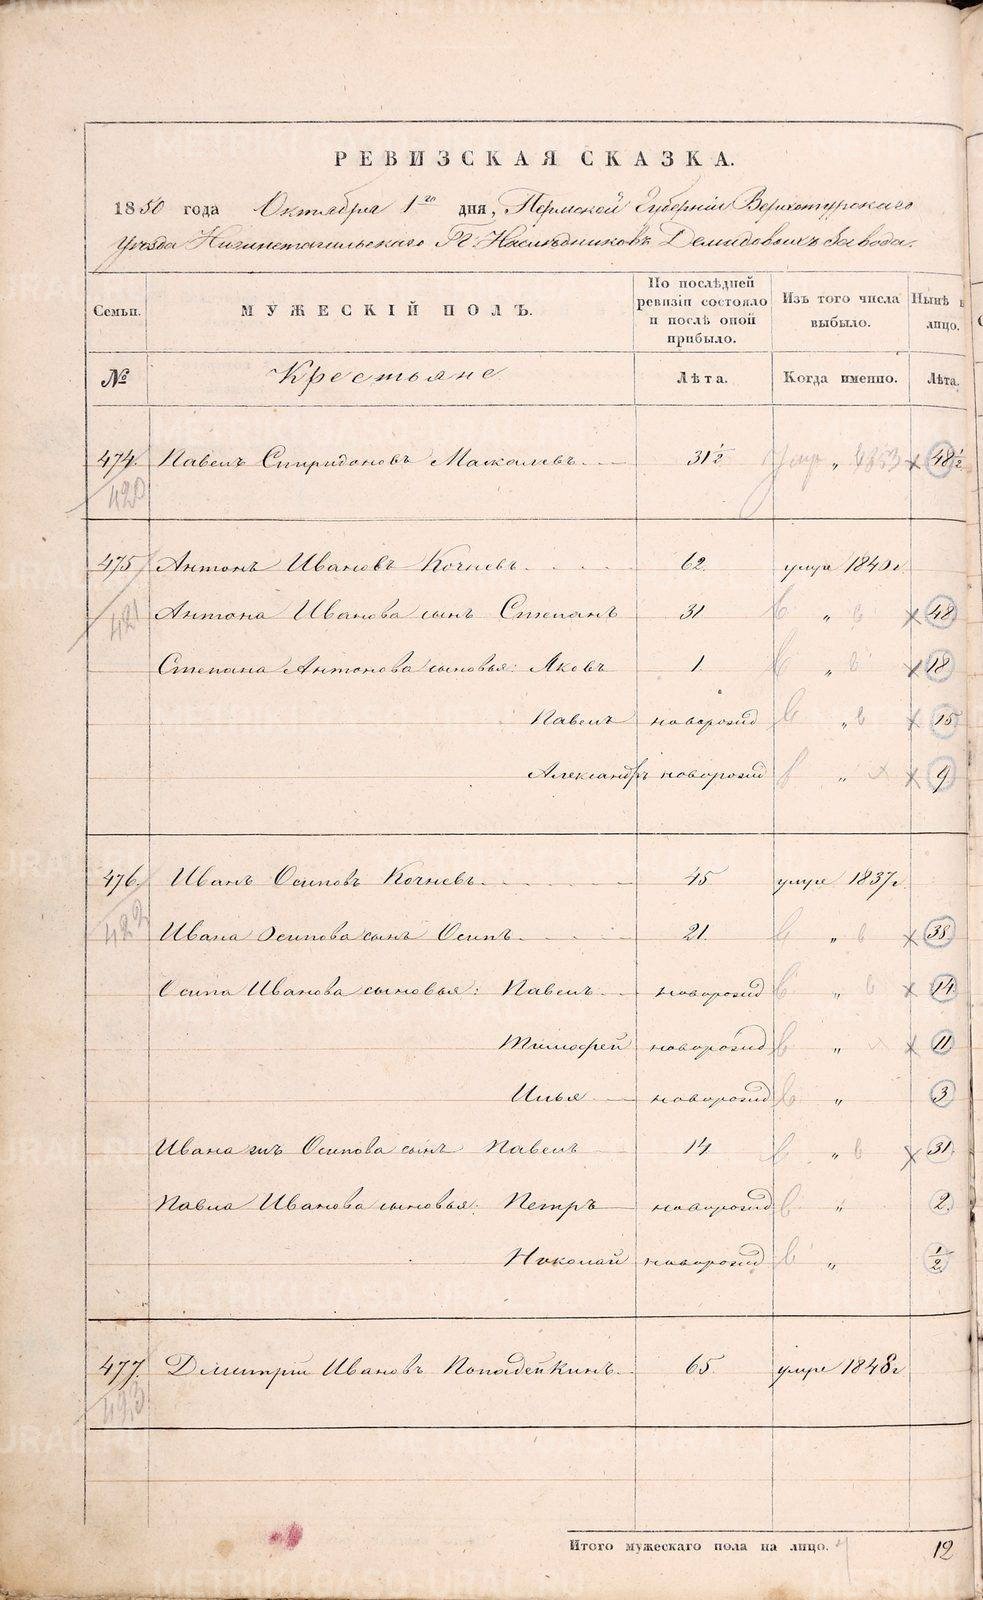 РЕВИЗСКАЯ СКАЗКА.
1850 года Октября 1го дня, Пермской Губерніи Верхотурскаго
Уезда Нижнетагильскаго Гг. Наследниковъ Демидовыхъ Завода.
Семьи.
МУЖЕСКІЙ ПОЛЪ.
По послѣдней ревизіи состояло и послѣ оной прибыло.
Изъ того числа выбыло.
Нынѣ
лицо.
№ Крестьяне Лѣта. Когда именно. Лѣта.
474. Павелъ Спиридоновъ 31 1/2 „ 1853 48 1/2
420
475 Антонъ Ивановъ Кочневъ 62. умре 1840 г
421 Антона Иванова сынъ Степанъ 31 „ 48
Степана Антонова сыновья: Яковъ 1. „ 18
Павелъ новорожд „ 15
Александръ новорожд „ 9
476. Иванъ Осиповъ Кочневъ 45 умре 1837 г
422 Ивана Осипова сынъ Осипъ 21. „ 38.
Осипа Иванова сыновья: Павелъ новорожд „ 14.
Тимофей новорожд „ 11.
Илья новорожд „ 3
Ивана жъ Осипова сынъ Павелъ 14 „ 31
Павла Иванова сыновья: Петръ новорожд „ 2.
Николай новорожд „ 1/2
477. Дмитрій Ивановъ Попадейкинъ 65 умре 1848 г
423
Итого мужескаго пола на лицо. 12
METRIKI.GASO-URAL.RU